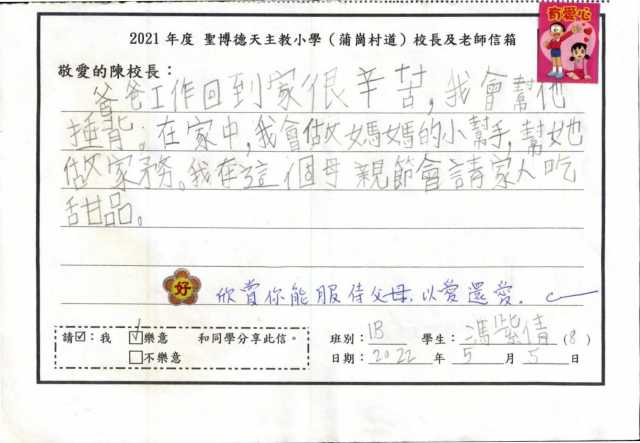 有愛心
2021 年度 聖博德天主教小學（蒲崗村道）校長及老師信箱
敬愛的陳校長：
爸爸工作回到家很辛苦，我會幫他
捶背。在家中，我會做媽媽的小幫手，幫她
做家務。我在這個母親節會請家人吃
甜品。
好 欣賞你能服侍父母，以愛還愛。
請☑：我 ☑樂意 和同學分享此信。 班別：1B 學生：馮紫倩 (8)
□不樂意 日期：2022 年 5 月 5 日